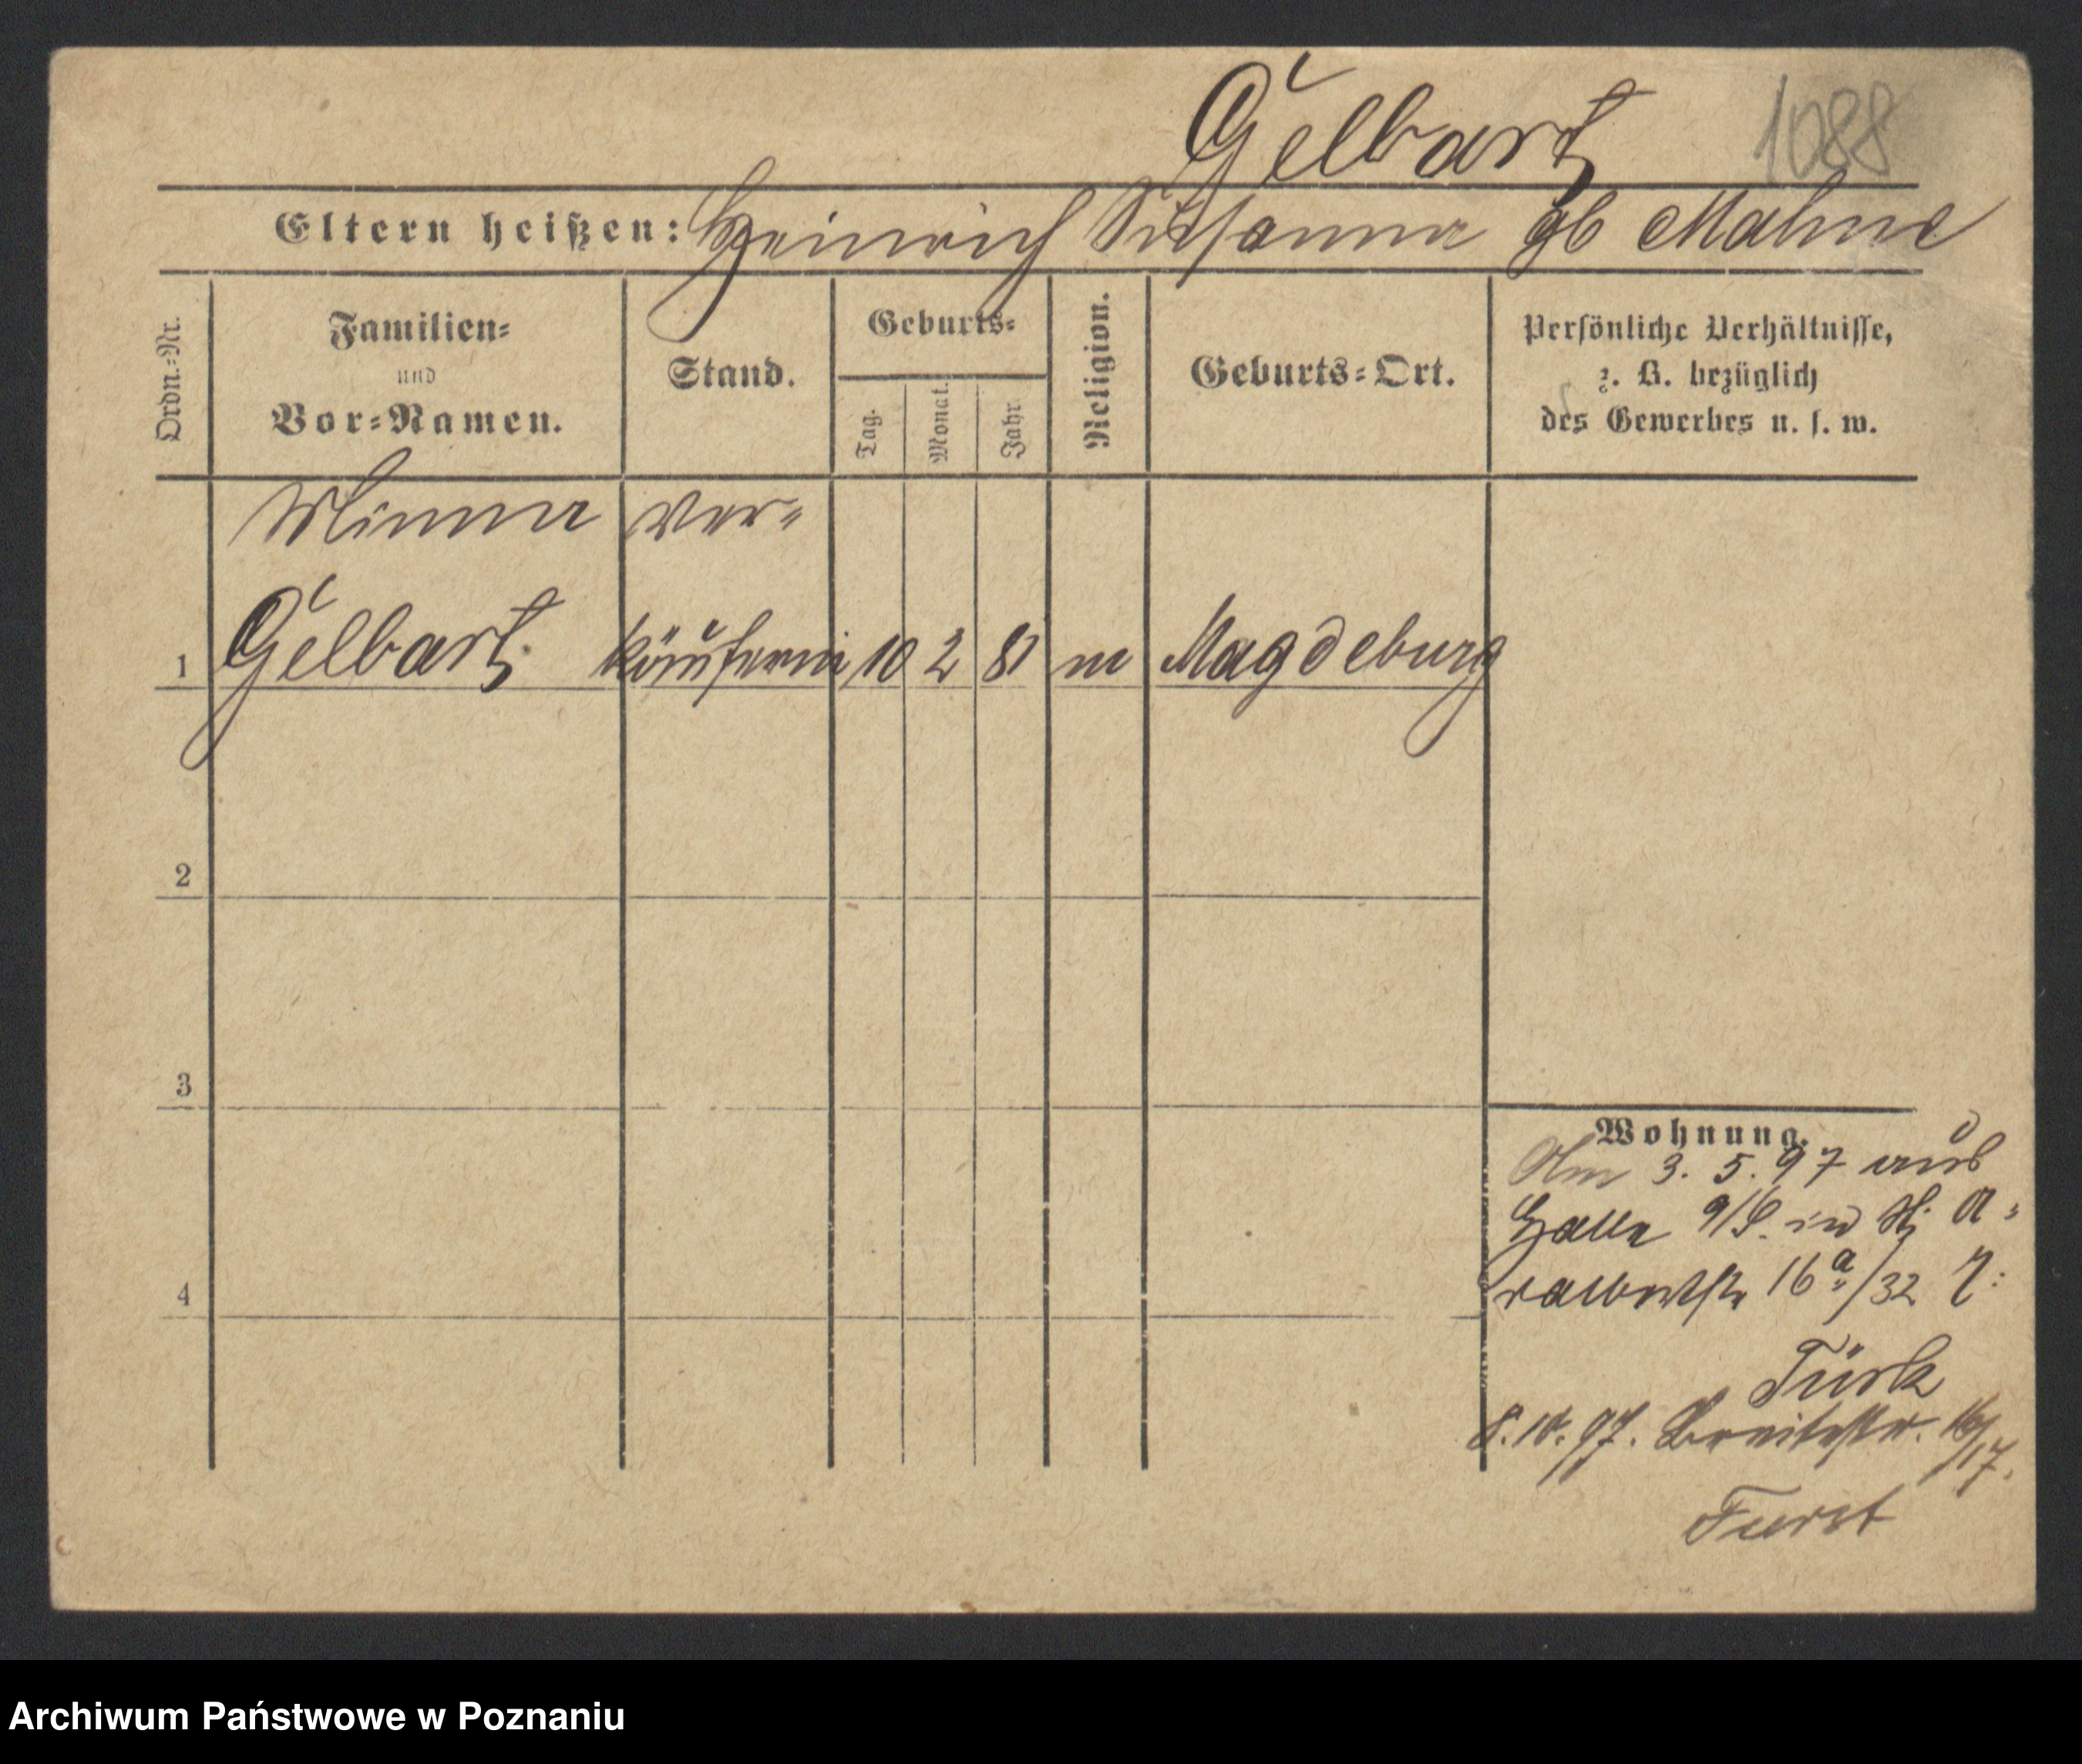 Gelbart 1088
Eltern heißen: Heinrich Susanna gb Mahne
Ordn.-Nr.
Familien-
und
Vor-Namen.
Stand.
Geburts-
Tag.
Monat.
Jahr.
Religion.
Geburts-Ort.
Persönliche Verhältnisse,
z. B. bezüglich
des Gewerbes u. s. w.
Minna Ver-
1 Gelbart käuferin 10 2 81 m Magdeburg
2
3
4
Wohnung.
Am 3. 5. 97 aus
Halle a/S. in
16a/32
Türk
8.10.97. Breitestr. 16/17.
Fuerst
Archiwum Państwowe w Poznaniu